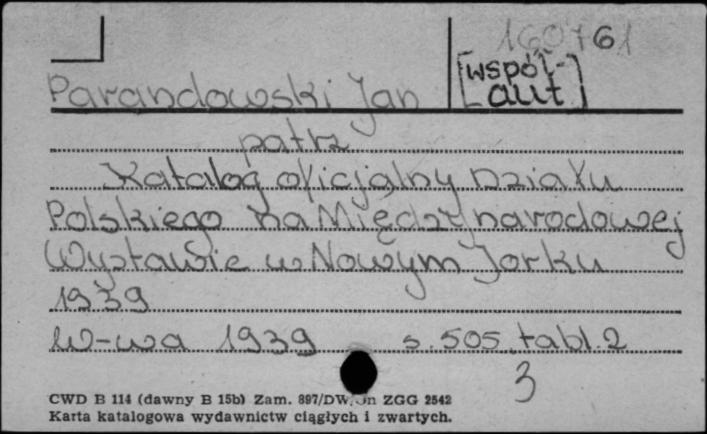 160761
[współ-
aut]
Parandowski Jan
patrz
Katalog oficjalny Działu
Polskiego na Międzynarodowej
Wystawie w Nowym Jorku
1939
W-wa 1939 s. 505, tabl. 2
3
CWD B 114 (dawny B 15b) Zam. 897/DW. ZGG 2542
Karta katalogowa wydawnictw ciągłych i zwartych.